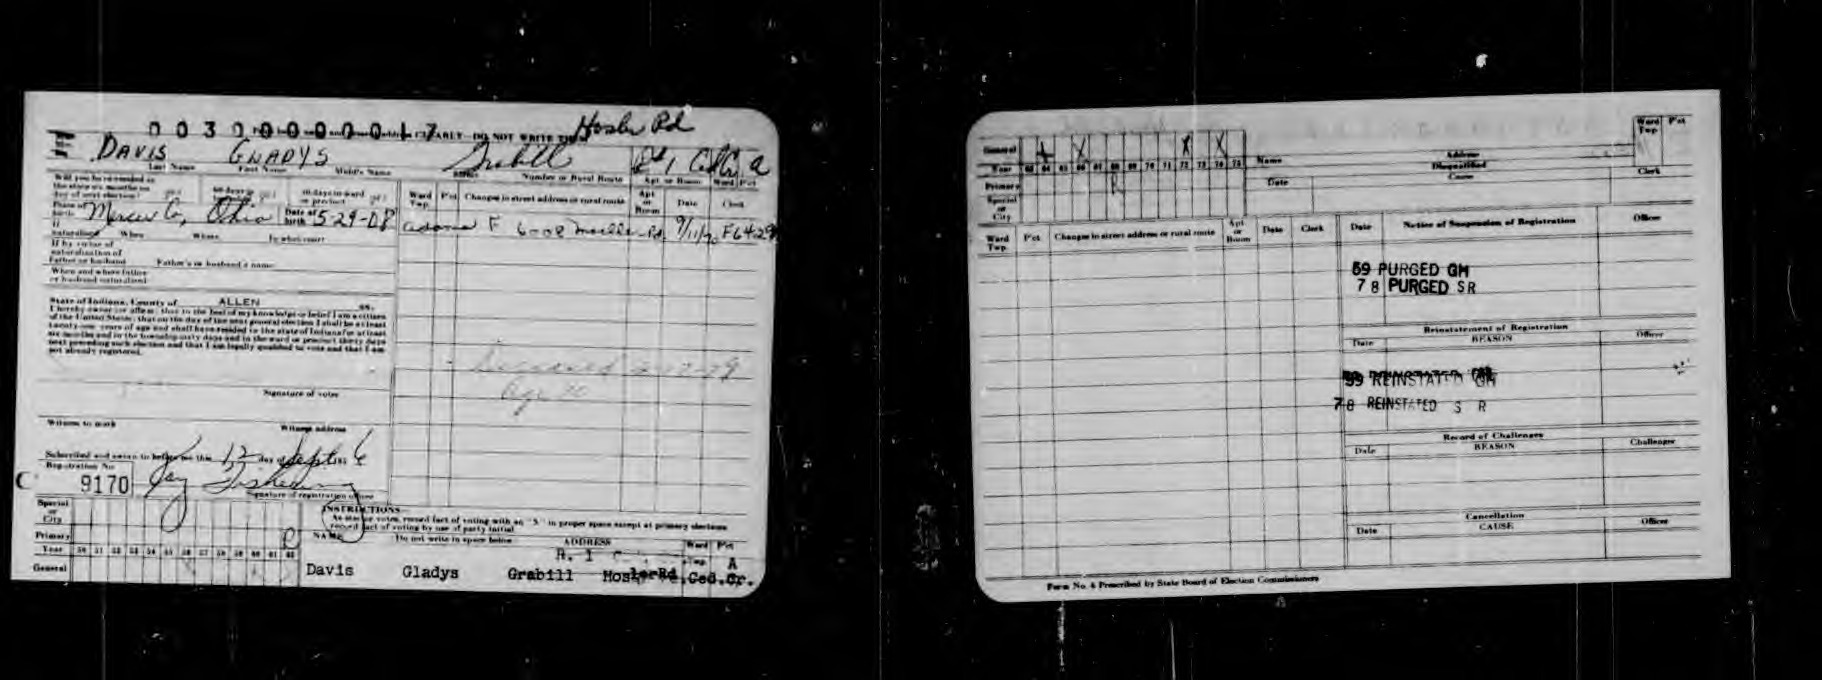 0030000017 ARLY DO NOT WRITE Hosler Rd
DAVIS GLADYS Grabill Rd 1 Ced Cr. A
Last Name First Name Middle Name Number or Rural Route Apt. or Room Ward Pct
Will you have resided in
the state six months on
day of next election? yes 60 days in yes 30 days in ward
or precinct yes
Ward
Twp. Pct Changes in street address or rural route Apt
or
Room Date Clerk
Place of
birth Mercer Co, Ohio Date of
birth 5-29-08
Adams F 6008 Moeller Rd. 9/11/70 F6429
If
naturalized When Where In what court
If by virtue of
naturalization of
Father or husband Father's or husband's name
When and where father
or husband naturalized
State of Indiana, County of ALLEN ss.
I hereby swear (or affirm) that to the best of my knowledge or belief I am a citizen
of the United States; that on the day of the next general election I shall be at least
twenty-one years of age and shall have resided in the state of Indiana for at least
six months and in the township sixty days and in the ward or precinct thirty days
next preceding such election and that I am legally qualified to vote and that I am
not already registered.
Deceased 2-17-79
Age 70
Signature of voter
Witness to mark Witness address
Subscribed and sworn to before me this 12 day of Sept 6
Registration No
C 9170
Signature of registration officer
Special
or
City
Primary
Year 50 51 52 53 54 55 56 57 58 59 60 61 62
General
INSTRUCTIONS
As elector votes, record fact of voting with an "X" in proper space except at primary elections
record fact of voting by use of party initial
NAME Do not write in space below ADDRESS Ward Pct
R. 1 Twp. A
Davis Gladys Grabill Hosler Rd. Ced. Cr.
General X X X X
Year 63 64 65 66 67 68 69 70 71 72 73 74 75
Primary R
Special
or
City
Name Address Ward
Twp Pct
Disqualified
Date Cause Clerk
Ward
Twp. Pct Changes in street address or rural route Apt
or
Room Date Clerk Date Notice of Suspension of Registration Officer
59 PURGED GH
78 PURGED SR
Reinstatement of Registration
Date REASON Officer
59 REINSTATED GH
78 REINSTATED S R
Record of Challenges
Date REASON Challenger
Cancellation
Date CAUSE Officer
Form No. 4 Prescribed by State Board of Election Commissioners